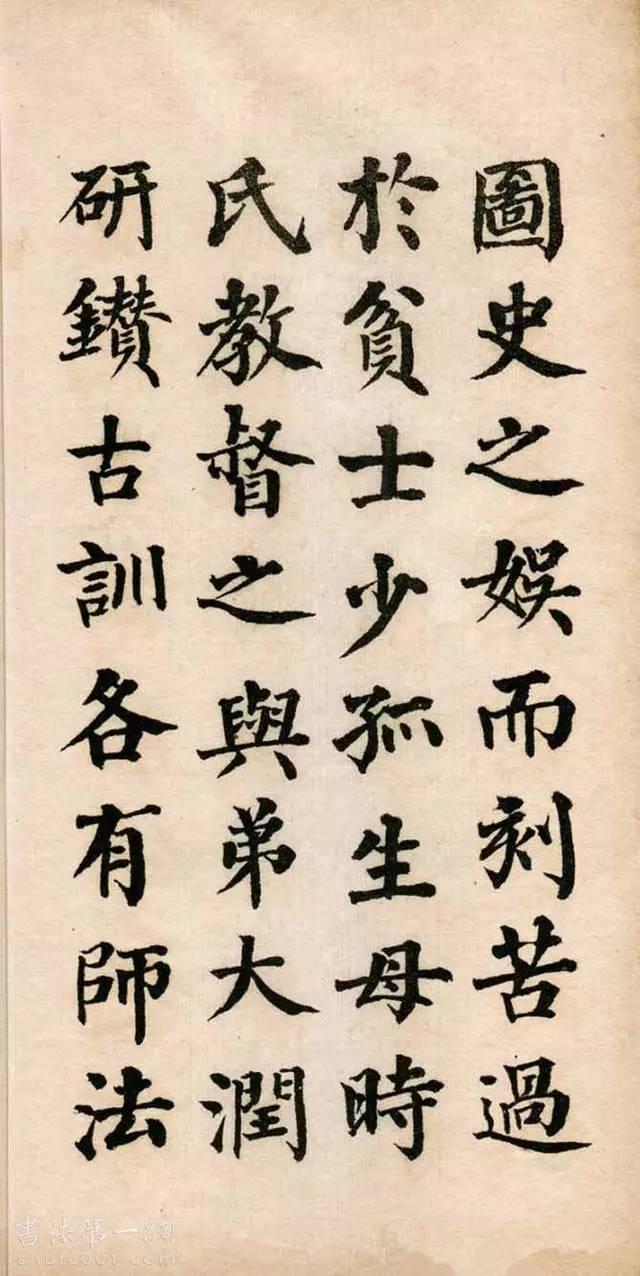 圖史之娱而刻苦過
於貧士少孤生母時
氏教督之與弟大潤
研鑚古訓各有師法
書法第一網
shufa001.com